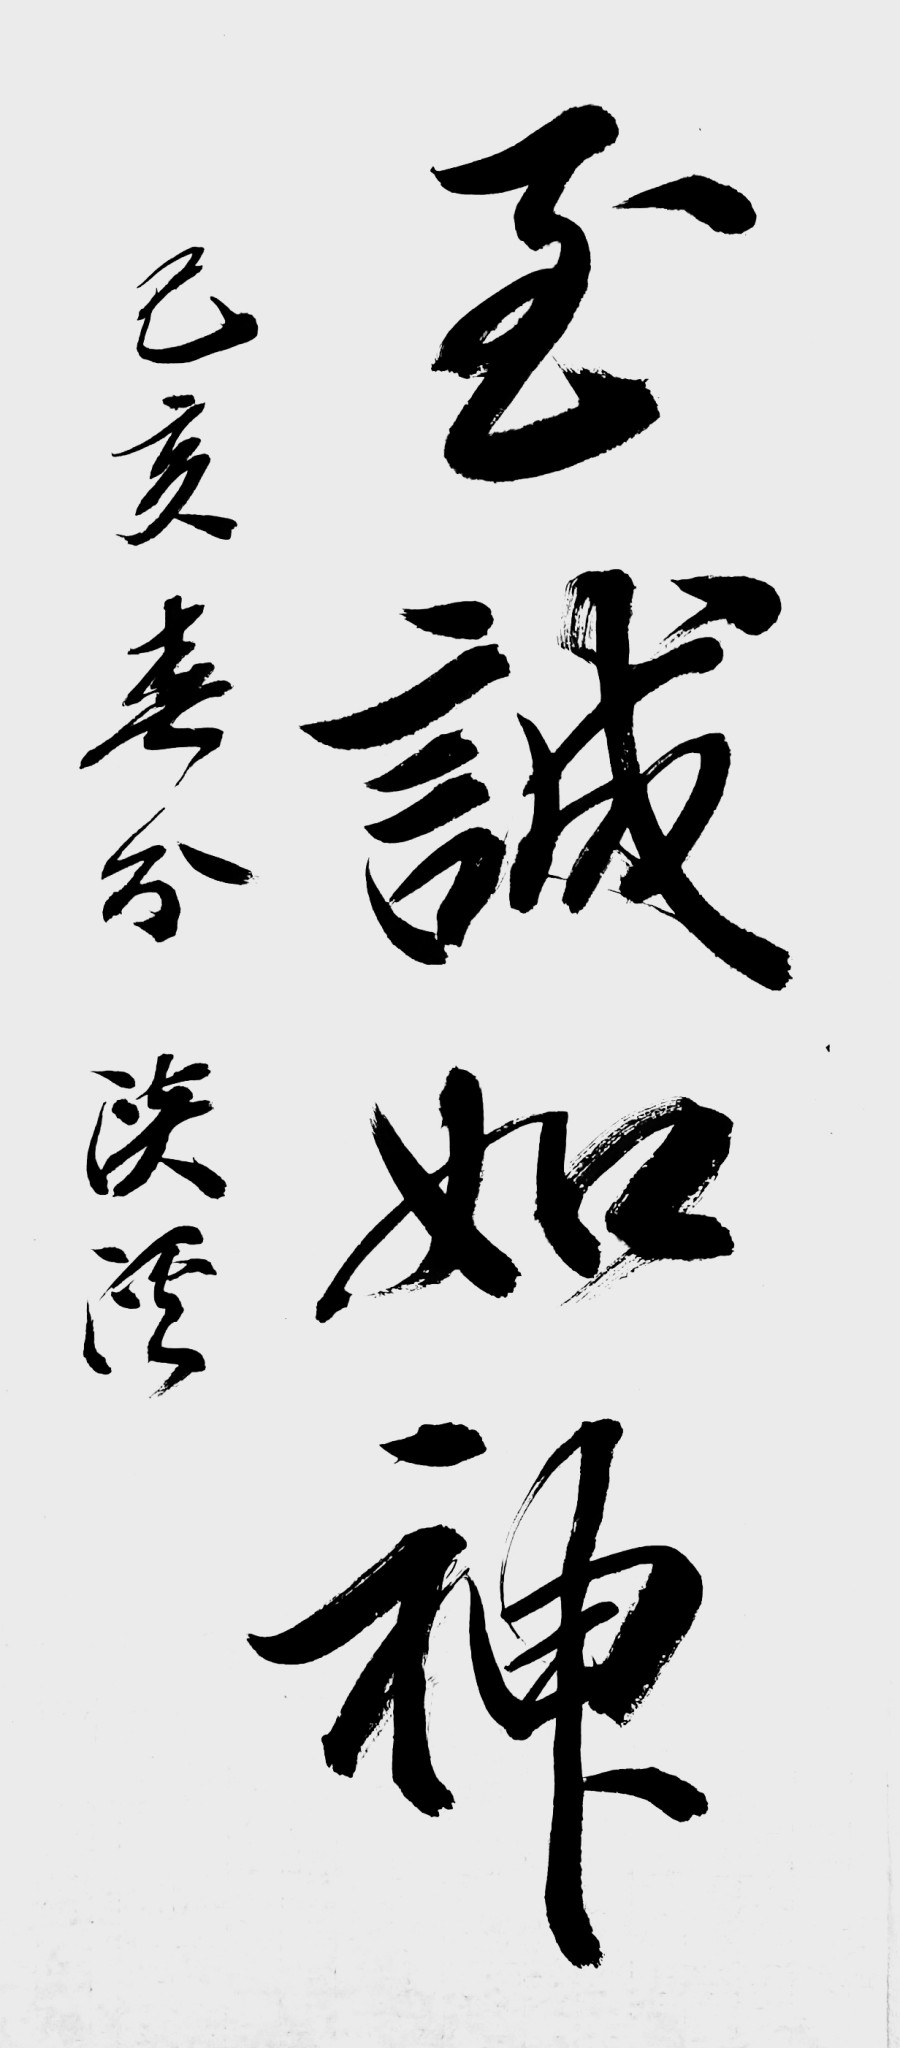 至誠如神
己亥春分 淡